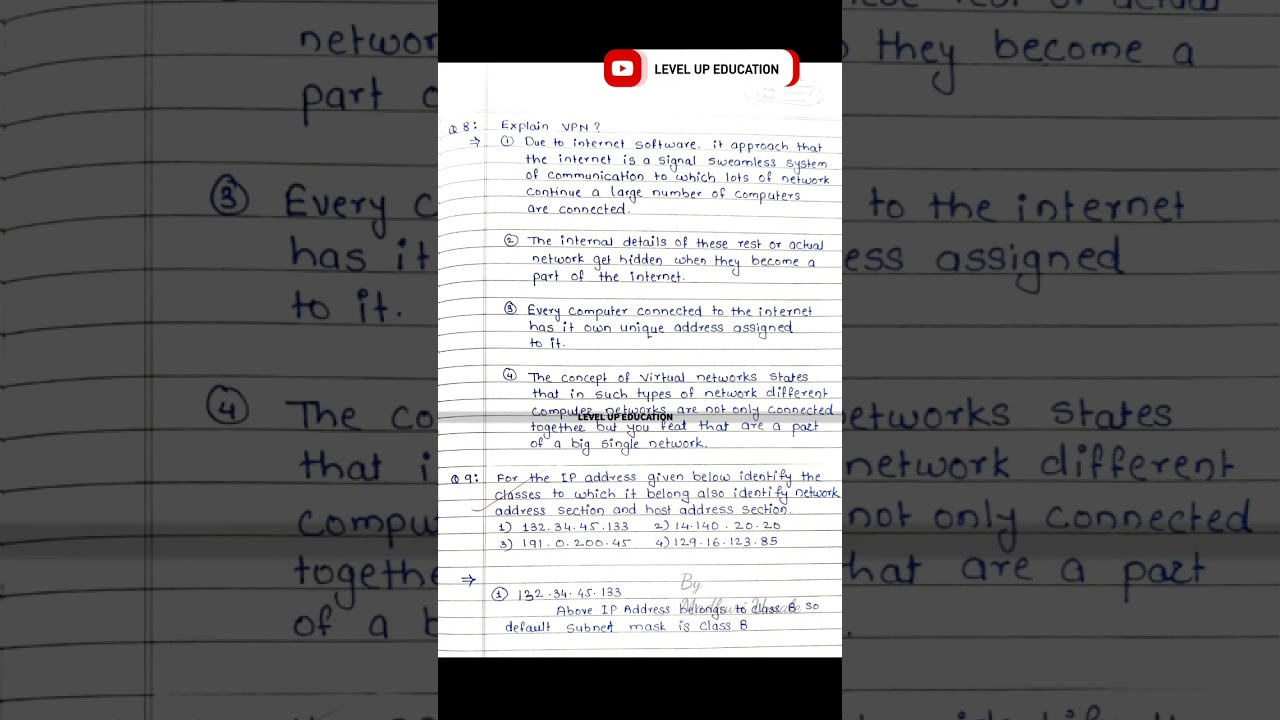 LEVEL UP EDUCATION
Q 8: Explain VPN?
⇒ ① Due to internet software. it approach that
the internet is a signal sweamless system
of communication to which lots of network
continue a large number of computers
are connected.
② The internal details of these rest or actual
network get hidden when they become a
part of the internet.
③ Every computer connected to the internet
has it own unique address assigned
to it.
④ The concept of Virtual networks states
that in such types of network different
computer networks are not only connected
LEVEL UP EDUCATION
together but you feat that are a part
of a big single network.
Q 9: For the IP address given below identify the
classes to which it belong also identify network
address section and host address section.
1) 132.34.45.133 2) 14.140.20.20
3) 191.0.200.45 4) 129.16.123.85
⇒
By
① 132.34.45.133
Above IP Address belongs to class B so
default subnet mask is class B